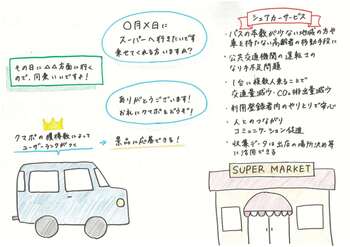 〇月×日に
スーパーへ行きたいです
乗せてくれる方いますか?
その日に△△方面に行く
ので、同乗いいですよ!
ありがとうございます!
お礼にクマポをどうぞ!
クマポの獲得数によって
ユーザーランクがつく
→ 景品に応募できる!
シェアカーサービス
・バスの本数が少ない地域の方や
車を持たない高齢者の移動手段に
・公共交通機関の運転士の
なり手不足問題
・1台に複数人乗ることで
交通量減少・CO₂排出量減少
・利用登録者内のやりとりで安心
・人とのつながり
コミュニケーション促進
・収集データは出店の場所決め等
に活用できる
SUPER MARKET